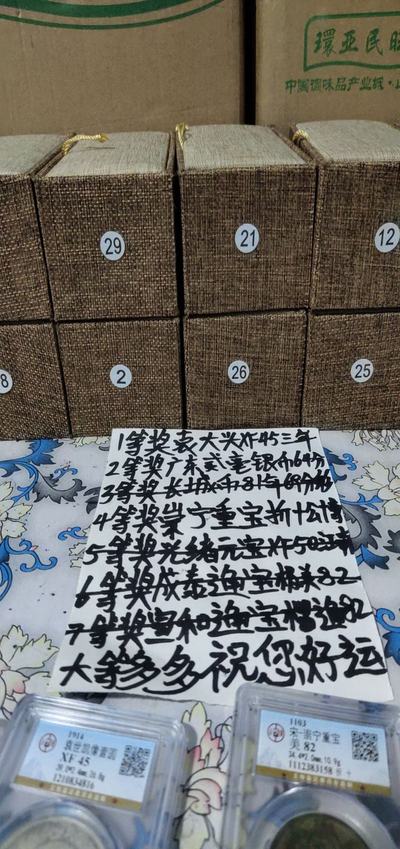 環亚民旺
中国调味品产业纸·
29
21
12
8
2
26
25
1等奖袁大头XF45三年
2等奖广东贰毫银币64分
3等奖长城币81年68分
4等奖崇宁重宝折十公博
5等奖光绪元宝XF50江南
6等奖咸泰通宝楷美82
7等奖宣和通宝楷遍82
大等多多祝您好运
1914
袁世凯像壹圆
XF 45
1210834816
1103
宋·崇宁重宝
美 82
1112383158